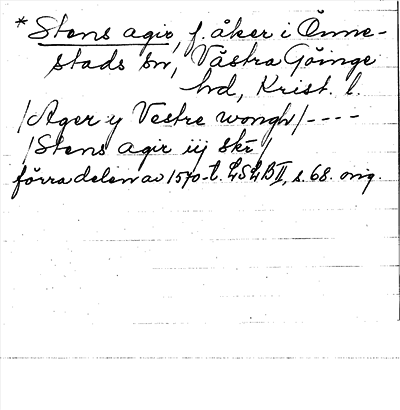 * Stens agir, f. åker i Önne-
stads sn, Västra Göinge
hd, Krist. l.
/Ager y Vestre wongh/----
/Stens agir iij skr/
förra delen av 1570-t. LSLB II, s. 68. orig.